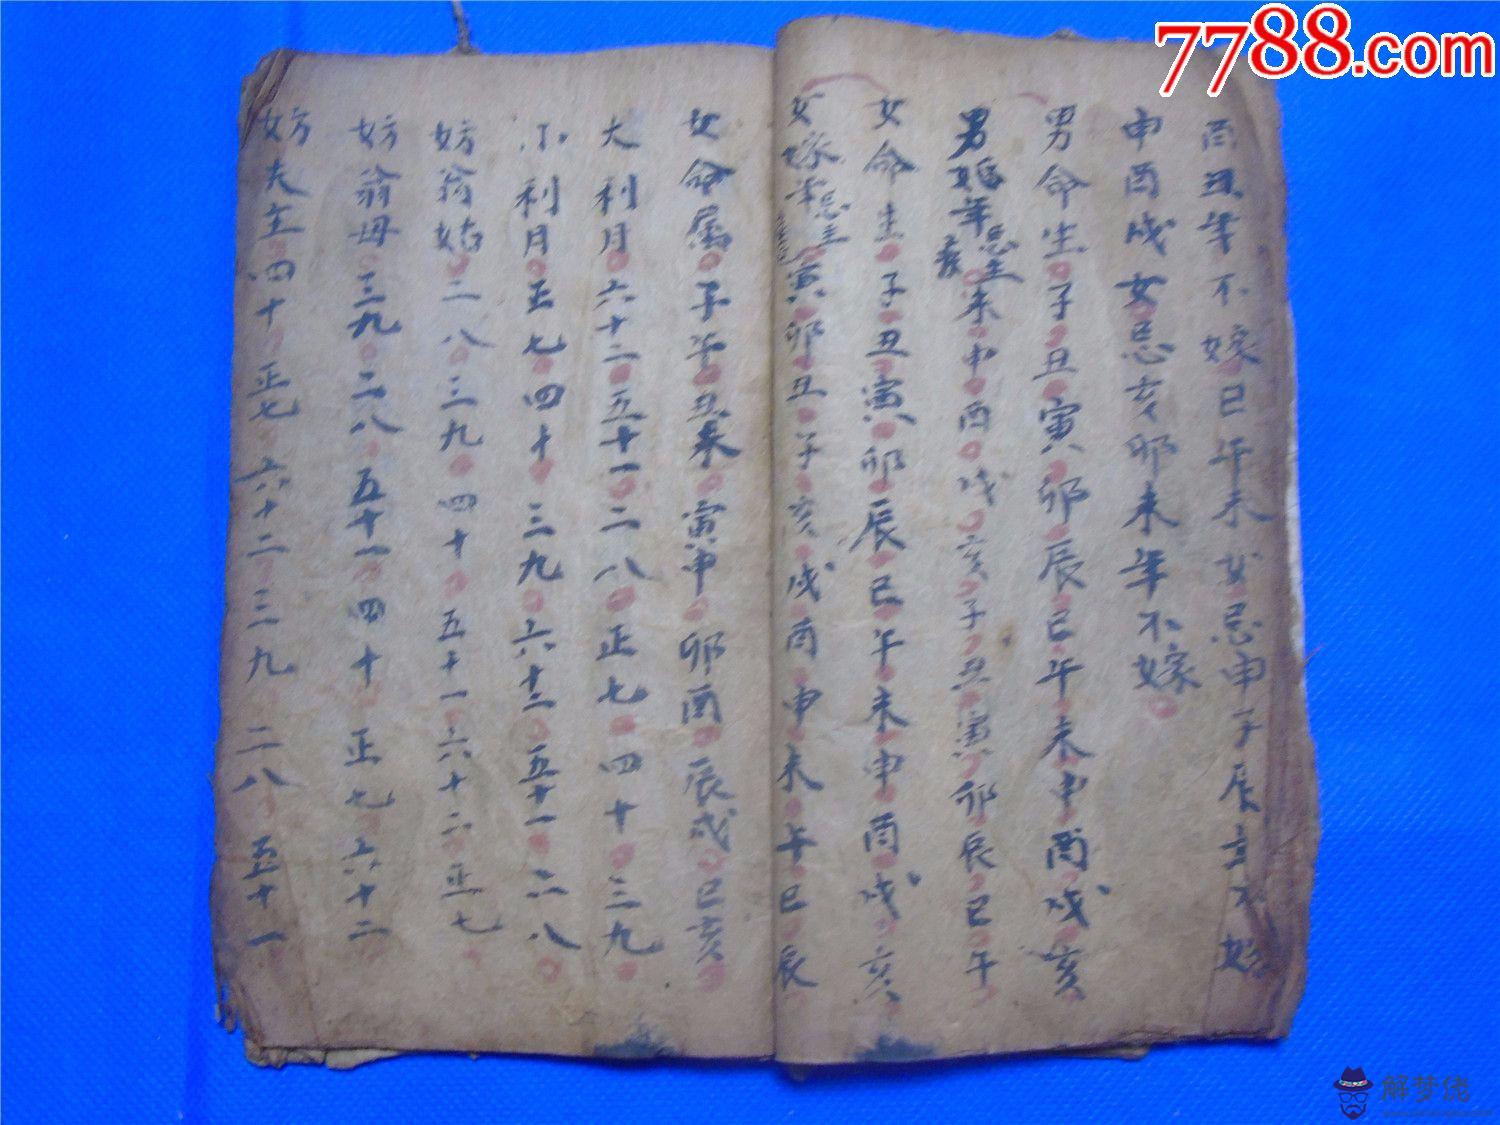 7788.com
酉丑年不嫁巳午未女忌申子辰年不嫁
申酉戌女忌亥卯未年不嫁
男命生子丑寅卯辰巳午未申酉戌亥
男婚年忌生未申酉戌亥子丑寅卯辰巳午
女命生子丑寅卯辰巳午未申酉戌亥
女嫁年忌生寅卯丑子亥戌酉申未午巳辰
女命属子午丑未寅申卯酉辰戌巳亥
大利月六十二五十一二八正七四十三九
小利月正七四十三九六十二五十一二八
妨翁姑二八三九四十五十一六十二正七
妨翁母三九二八五十一四十正七六十二
妨夫主四十正七六十二三九二八五十一
解梦佬